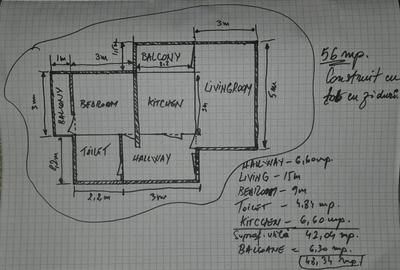 3m
1m
3m
1,5m
BALCONY
2,2
56 mp.
Construit cu
LIVINGROOM
5m
3m
BALCONY
BEDROOM
KITCHEN
3m
2,2m
TOILET
HALLWAY
2,2m
3m
HALLWAY - 6,60mp.
LIVING - 15m
BEDROOM - 9m
TOILET - 4.84 mp.
KITCHEN - 6,60 mp.
Supraf. utilă 42,04 mp.
BALCOANE = 6,30 mp.
48,34 mp